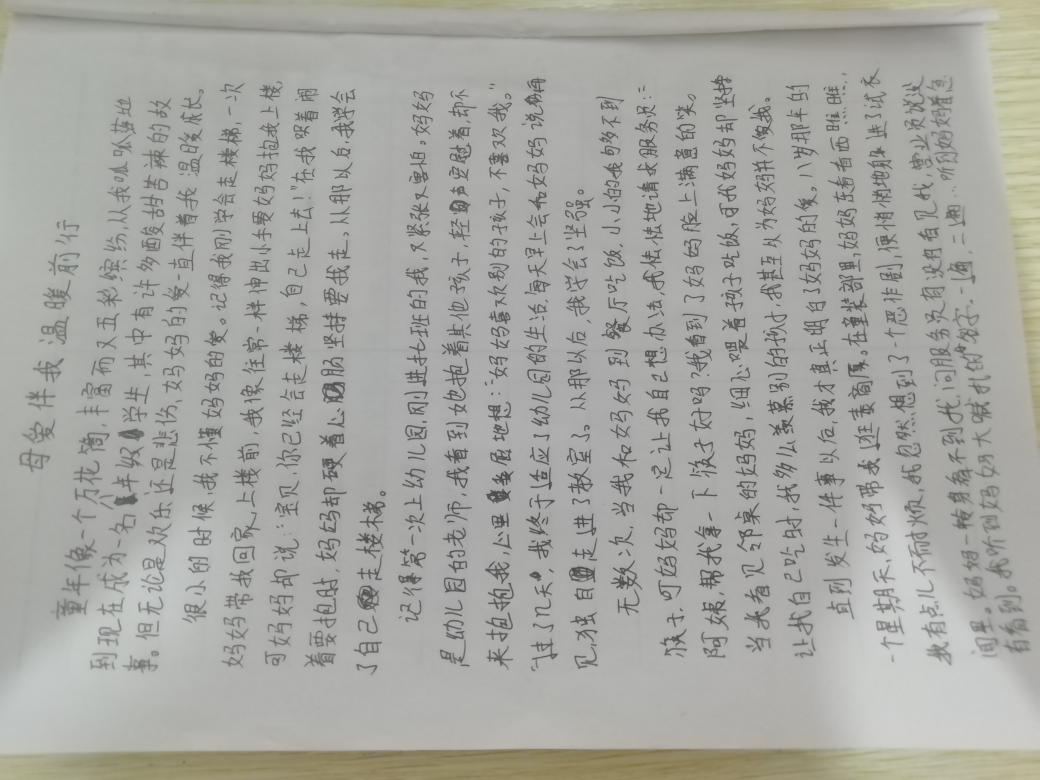 母爱伴我温暖前行
童年像一个万花筒，丰富而又五彩缤纷，从我呱呱落地
到现在成为一名六年级学生，其中有许多酸甜苦辣的故
事。但无论是欢乐还是悲伤，妈妈的爱一直伴着我温暖成长。
很小的时候，我不懂妈妈的爱。记得我刚学会走楼梯，一次
妈妈带我回家，上楼前，我像往常一样伸出小手要妈妈抱我上楼，
可妈妈却说：“宝贝，你已经会走楼梯，自己走上去！”在我哭着闹
着要抱时，妈妈却硬着心肠坚持要我走，从那以后，我学会
了自己走楼梯。
记得第一次上幼儿园，刚进托班的我，又紧张又害怕。妈妈
是幼儿园的老师，我看到她抱着其他孩子，轻声安慰着，却不
来抱抱我，心里委屈地想：“妈妈喜欢别的孩子，不喜欢我。”
过了几天，我终于适应了幼儿园的生活，每天早上会和妈妈说再
见，独自走进了教室了。从那以后，我学会了坚强。
无数次，当我和妈妈到餐厅吃饭，小小的我够不到
筷子，可妈妈却一定让我自己想办法，我怯怯地请求服务员：“
阿姨，帮我拿一下筷子好吗？我看到了妈妈脸上满意的笑。
当我看见邻桌的妈妈，细心喂着孩子吃饭，可我妈妈却坚持
让我自己吃时，我多么羡慕别的孩子，我甚至认为妈妈并不爱我。
直到发生一件事以后，我才真正明白了妈妈的爱。八岁那年的
一个星期天，妈妈带我逛卖商厦。在童装部里，妈妈东看看西瞧瞧，
我有点儿不耐烦，我忽然想到了一个恶作剧，便悄悄地躲进了试衣
间里。妈妈一转身看不到我，问服务员有没有看见我，营业员说没
有看到。我听到妈妈大喊我的名字，一遍，二遍…听到妈妈着急